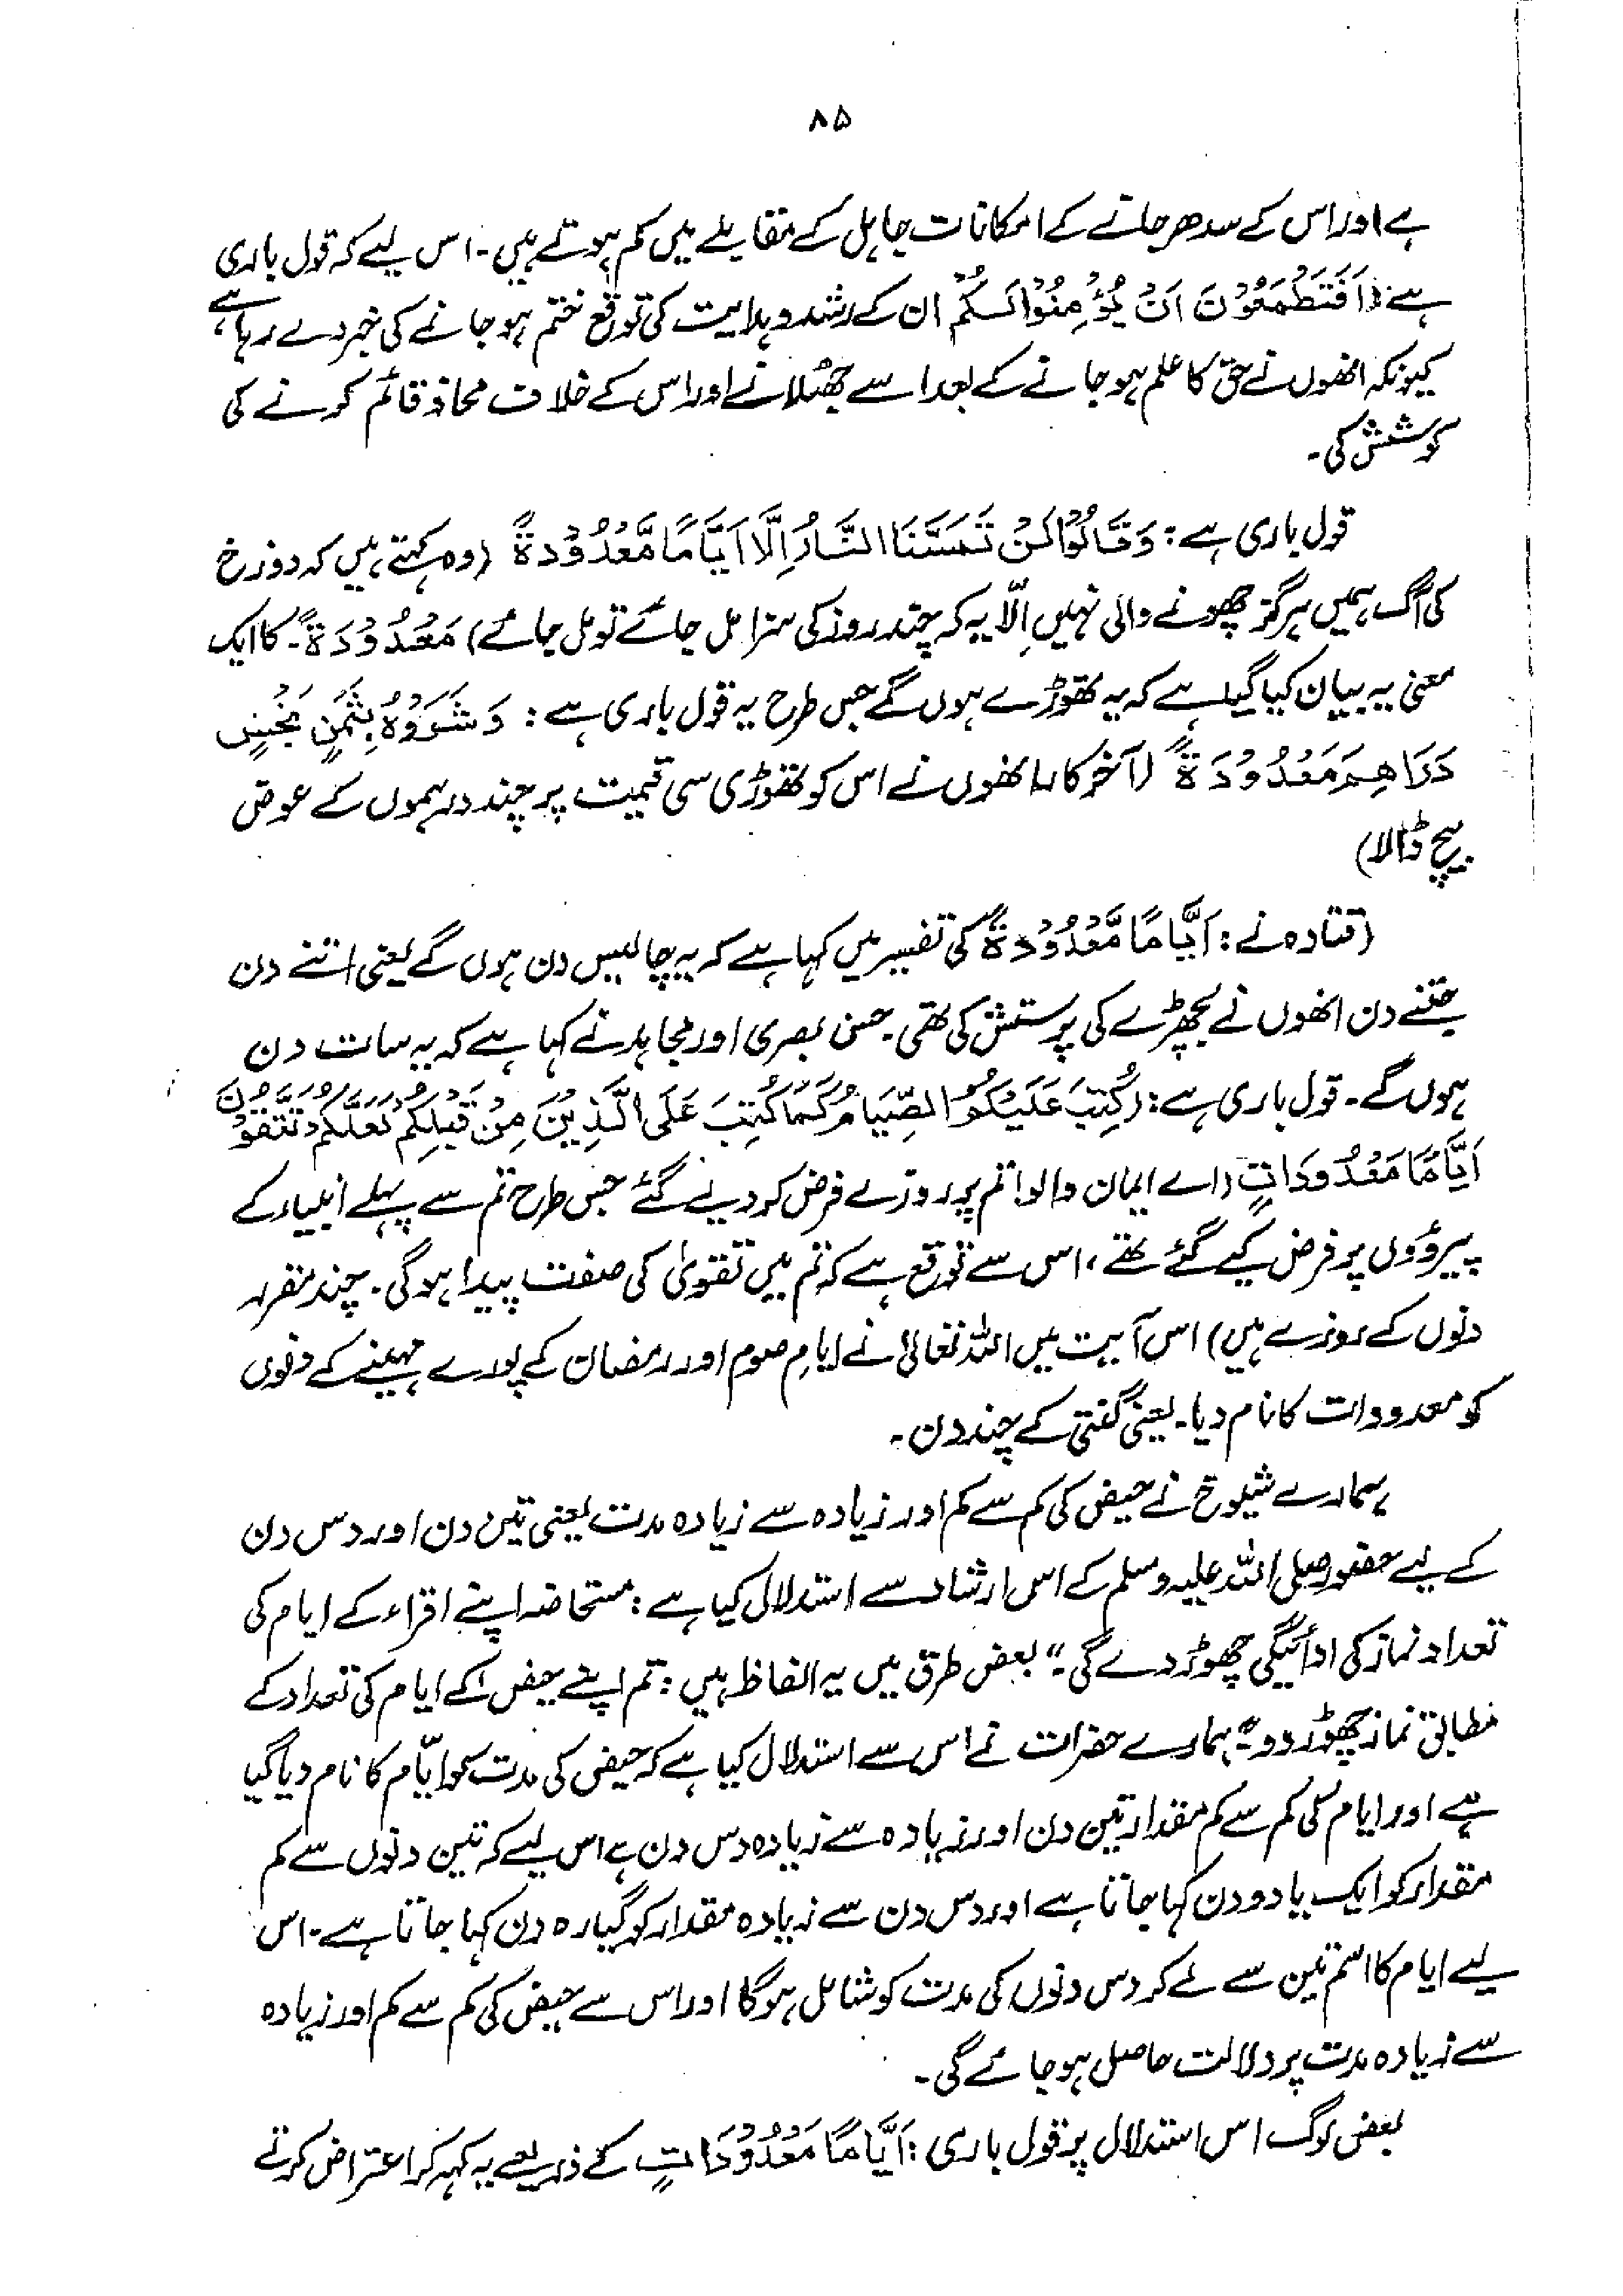 ۸۵
ہے اور اس کے سدھر جانے کے امکانات جاہل کے مقابلے میں کم ہوتے ہیں۔ اس لیے کہ قول باری
ہے: (اَفَتَطْمَعُوْنَ اَنْ یُّؤْمِنُوْا لَكُمْ ان کے رشد و ہدایت کی توقع ختم ہو جانے کی خبر دے رہا ہے،
کیونکہ انھوں نے حق کا علم ہو جانے کے بعد اسے جھٹلانے اور اس کے خلاف محاذ قائم کرنے کی
کوشش کی۔
قول باری ہے: وَقَالُوْا لَنْ تَمَسَّنَا النَّارُ اِلَّا اَيَّامًا مَّعْدُوْدَةً (وہ کہتے ہیں کہ دوزخ
کی آگ ہمیں ہرگز چھونے والی نہیں اِلّا یہ کہ چند روز کی سزا مل جائے تو مل جائے) مَعْدُوْدَةً۔ کا ایک
معنی یہ بیان کیا گیا ہے کہ یہ تھوڑے ہوں گے جس طرح یہ قول باری ہے: وَشَرَوْهُ بِثَمَنٍ بَخْسٍ
دَرَاهِمَ مَعْدُوْدَةً (آخر کار انھوں نے اس کو تھوڑی سی قیمت پر چند درہموں کے عوض
بیچ ڈالا)
(قتادہ نے: اَيَّامًا مَّعْدُوْدَةً کی تفسیر میں کہا ہے کہ یہ چالیس دن ہوں گے یعنی اتنے دن
جتنے دن انھوں نے بچھڑے کی پرستش کی تھی۔ حسن بصری اور مجاہد نے کہا ہے کہ یہ سات دن
ہوں گے۔ قول باری ہے: (كُتِبَ عَلَيْكُمُ الصِّيَامُ كَمَا كُتِبَ عَلَى الَّذِيْنَ مِنْ قَبْلِكُمْ لَعَلَّكُمْ تَتَّقُوْنَ
اَيَّامًا مَعْدُودَاتٍ (اے ایمان والو! تم پر روزے فرض کر دیے گئے جس طرح تم سے پہلے انبیاء کے
پیروؤں پر فرض کیے گئے تھے، اس سے توقع ہے کہ تم میں تقویٰ کی صفت پیدا ہو گی۔ چند مقررہ
دنوں کے روزے ہیں) اس آیت میں اللہ تعالیٰ نے ایامِ صوم اور رمضان کے پورے مہینے کے دنوں
کو معدودات کا نام دیا۔ یعنی گنتی کے چند دن۔
ہمارے شیوخ نے حیض کی کم سے کم اور زیادہ سے زیادہ مدت یعنی تین دن اور دس دن
کے لیے حضور صلی اللہ علیہ وسلم کے اس ارشاد سے استدلال کیا ہے: مستحاضہ اپنے اقراء کے ایام کی
تعداد نماز کی ادائیگی چھوڑ دے گی۔“ بعض طرق میں یہ الفاظ ہیں: تم اپنے حیض کے ایام کی تعداد کے
مطابق نماز چھوڑ دو۔“ ہمارے حضرات نے اس سے استدلال کیا ہے کہ حیض کی مدت کو ایّام کا نام دیا گیا
ہے اور ایام کی کم سے کم مقدار تین دن اور زیادہ سے زیادہ دس دن ہے اس لیے کہ تین دنوں سے کم
مقدار کو ایک یا دو دن کہا جاتا ہے اور دس دن سے زیادہ مقدار کو گیارہ دن کہا جاتا ہے۔ اس
لیے ایام کا اسم تین سے لے کر دس دنوں کی مدت کو شامل ہو گا اور اس سے حیض کی کم سے کم اور زیادہ
سے زیادہ مدت پر دلالت حاصل ہو جائے گی۔
بعض لوگ اس استدلال پر قول باری: اَيَّامًا مَعْدُوْدَاتٍ کے ذریعے یہ کہہ کر اعتراض کرتے